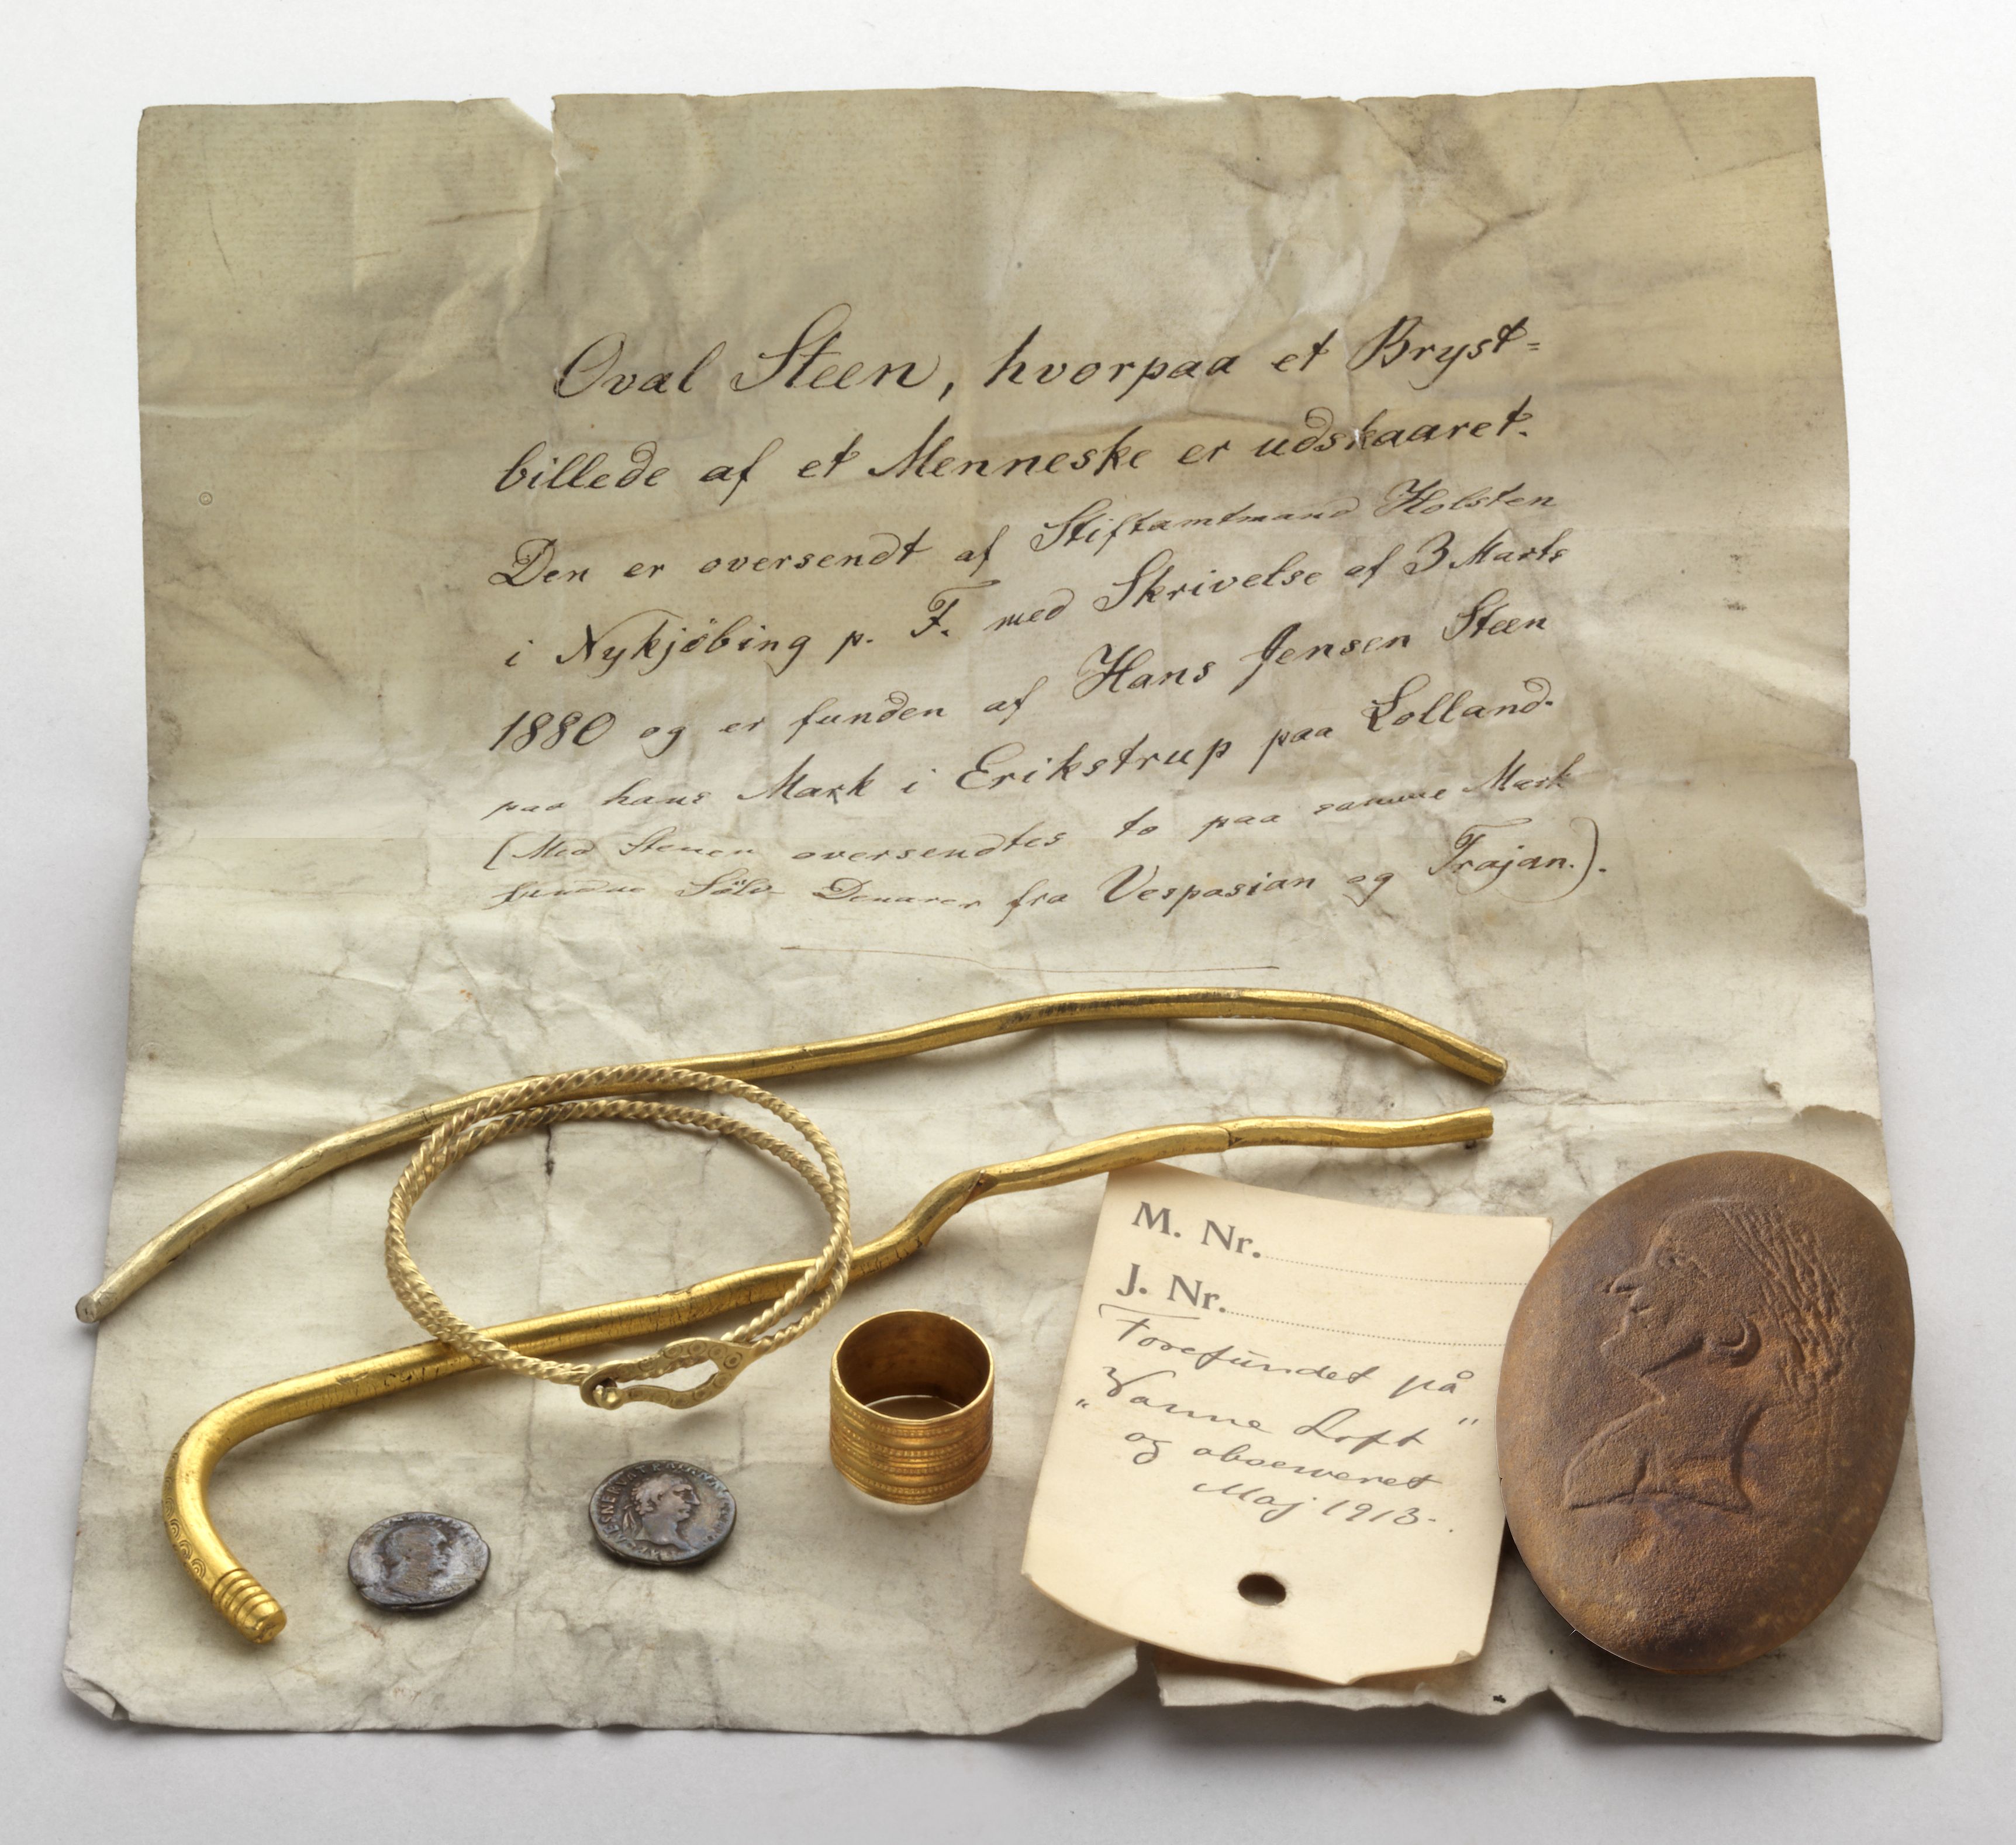 Oval Steen, hvorpaa et Bryst=
billede af et Menneske er udskaaret.
Den er oversendt af Stiftamtmand Holsten
i Nykjöbing p. F. med Skrivelse af 3 Marts
1880 og er funden af Hans Jensen Steen
paa hans Mark i Erikstrup paa Lolland.
(Med Stenen oversendtes to paa samme Mark
fundne Sölv Denarer fra Vespasian og Trajan.).
M. Nr.
J. Nr.
Forefundet på
"Varme Loft"
og observeret
Maj 1913.